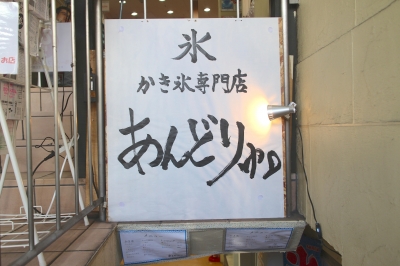 氷
かき氷専門店
あんどりゅ。